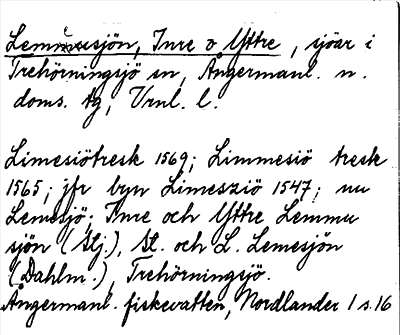 Lemmesjön, Inre o Yttre, sjöar i
Trehörningsjö sn, Ångermanl. n.
doms. tg, Vrnl. l.
Limesiötresk 1569; Limmesiö tresk
1565; jfr byn Limesziö 1547; nu
Lemesjö; Inre och Yttre Lemmu
sjön (Slj.), St. och L. Lemesjön
(Dahlm.), Trehörningsjö.
Ångermanl. fiskevatten, Nordlander 1 s. 16